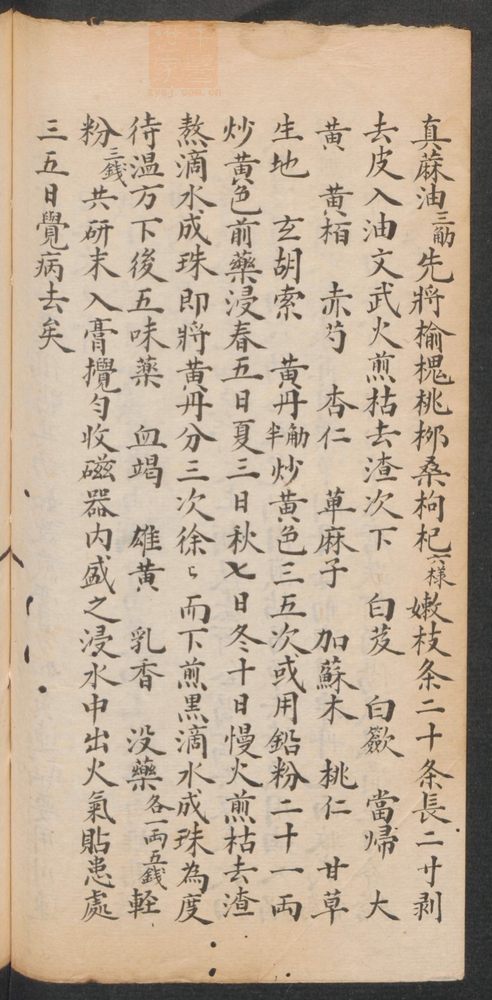 真蔴油三觔先將榆槐桃栁桑枸杞六樣嫩枝条二十条長二寸剥
去皮入油文武火煎枯去渣次下 白芨 白歛 當歸 大
黄 黄栢 赤芍 杏仁 萆麻子 加蘇木 桃仁 甘草
生地 玄胡索 黄丹半觔炒黄色三五次或用鉛粉二十一両
炒黄色前藥浸春五日夏三日秋七日冬十日慢火煎枯去渣
熬滴水成珠即將黄丹分三次徐々而下煎黑滴水成珠為度
待温方下後五味藥 血竭 雄黄 乳香 没藥各一両五錢 軽
粉三錢 共研末入膏攪匀收磁器内盛之浸水中出火氣貼患處
三五日覺病去矣